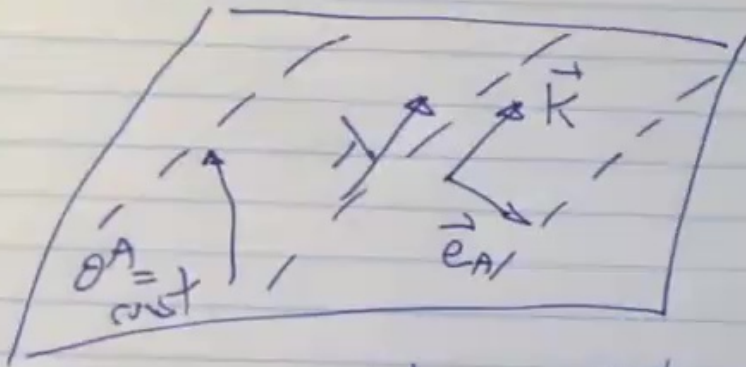 λ
k⃗
e⃗_A
θ^A =
const